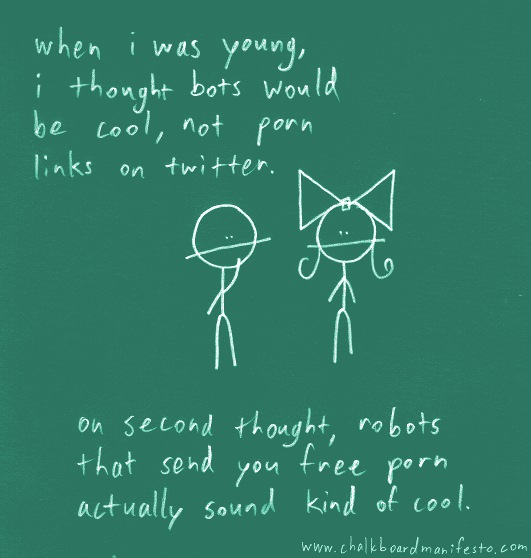 when i was young,
i thought bots would
be cool, not porn
links on twitter.
on second thought, robots
that send you free porn
actually sound kind of cool.
www.chalkboardmanifesto.com